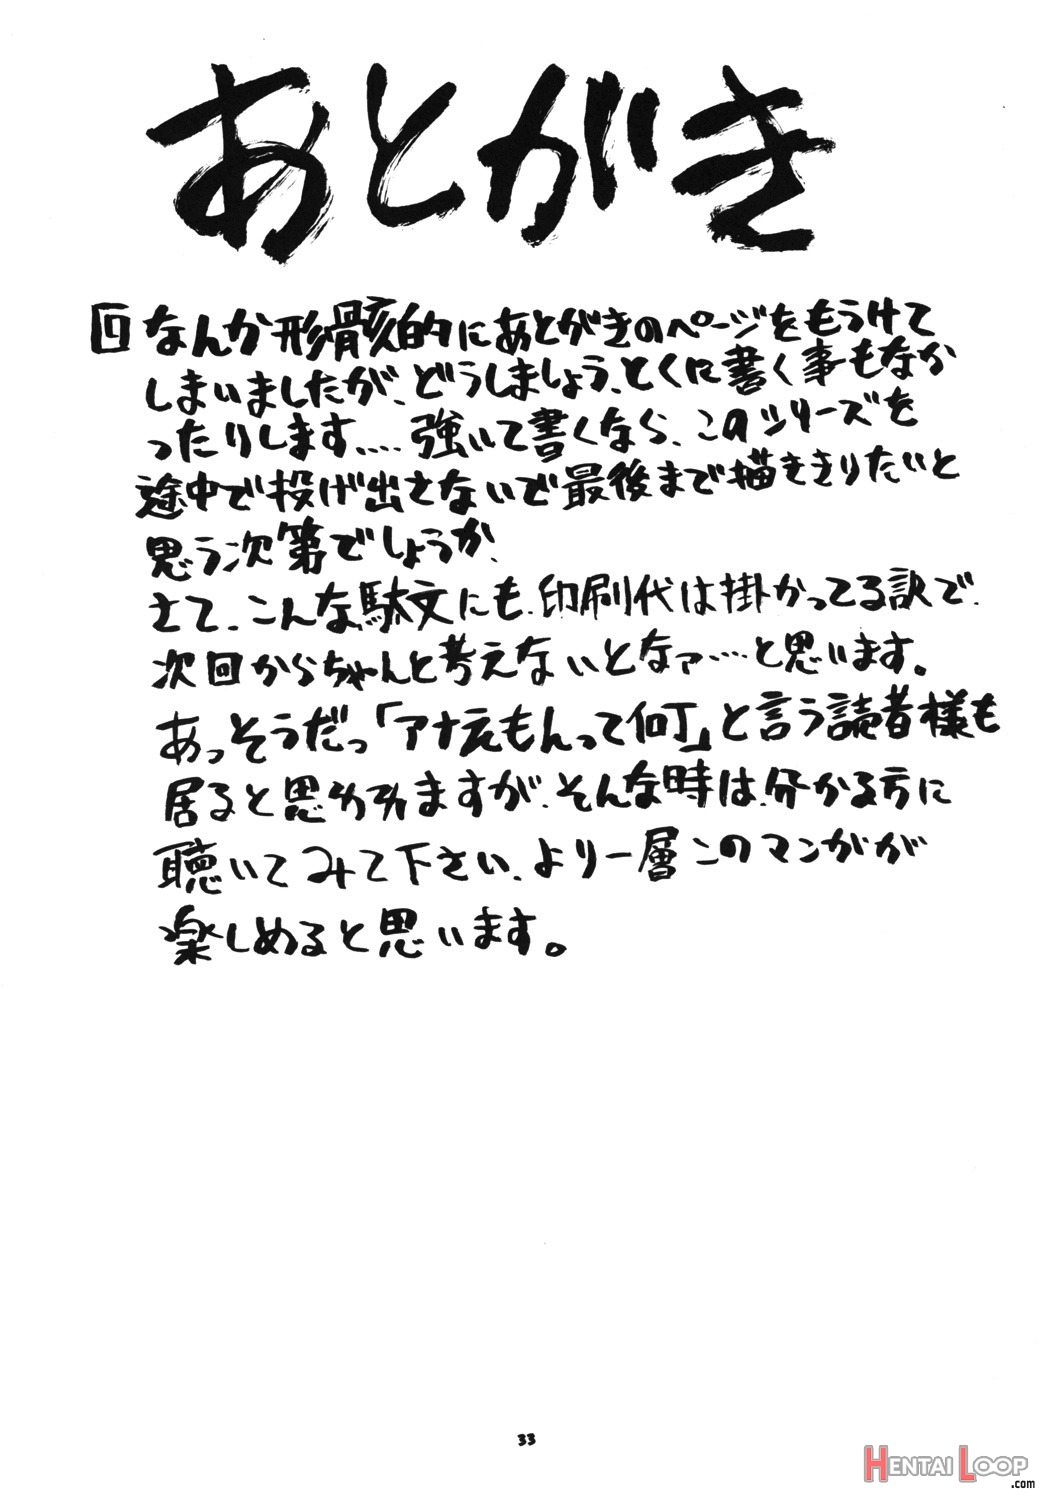 あとがき
回なんか形骸的にあとがきのページをもうけて
しまいましたが、どうしましょう、とくに書く事もなか
ったりします....強いて書くなら、このシリーズを
途中で投げ出さないで最後まで描ききりたいと
思う次第でしょうか、
さて、こんな駄文にも、印刷代は掛かってる訳で、
次回からちゃんと考えないとなァ....と思います。
あっそうだっ「アナえもんって何」と言う読者様も
居ると思われますが、そんな時は、分かる方に
聴いてみて下さい、より一層このマンガが
楽しめると思います。
33
HENTAI LOOP
.com